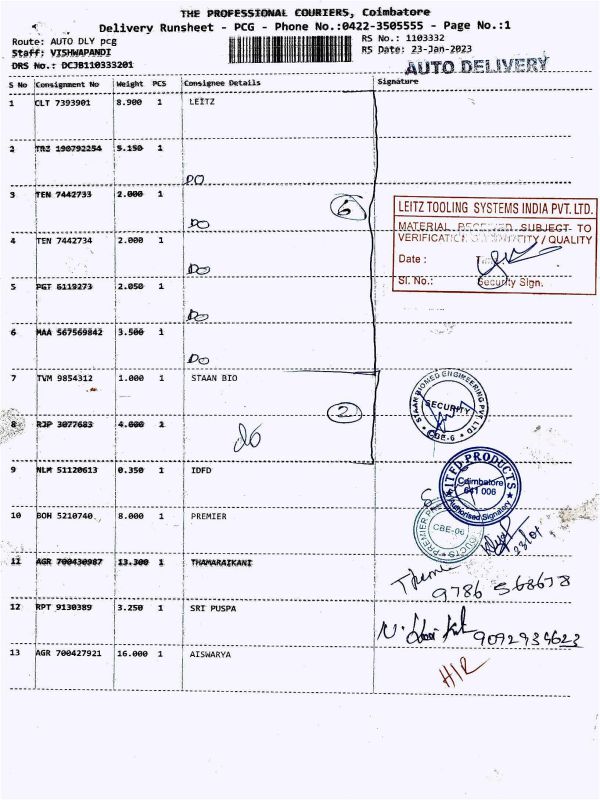 THE PROFESSIONAL COURIERS, Coimbatore
Delivery Runsheet - PCG - Phone No.:0422-3505555 - Page No.:1
Route: AUTO DLY pcg
RS No.: 1103332
Staff: VISHWAPANDI
RS Date: 23-Jan-2023
DRS No.: DCJB110333201
AUTO DELIVERY
S No Consignment No Weight PCS Consignee Details Signature
1 CLT 7393901 8.900 1 LEITZ
2 TRZ 190792254 5.150 1
DO
3 TEN 7442733 2.000 1
5
DO
LEITZ TOOLING SYSTEMS INDIA PVT. LTD.
MATERIAL RECEIVED SUBJECT TO
VERIFICATION QUANTITY / QUALITY
4 TEN 7442734 2.000 1
Date :
DO
Sl. No.: Security Sign.
5 PGT 6119273 2.050 1
DO
6 MAA 567569842 3.500 1
DO
7 TVM 9854312 1.000 1 STAAN BIO
STAAN BIOMED ENGINEERING PVT LTD
SECURITY
CBE-6
2
8 RJP 3077683 4.000 1
do
9 NLM 51120613 0.350 1 IDFD
ITFD PRODUCTS
Coimbatore
641 006
Authorised Signatory
10 BOH 5210740 8.000 1 PREMIER
PREMIER
CBE-06
PRODUCTS
23/01
11 AGR 700430987 13.300 1 THAMARAIKANI
9786 568678
12 RPT 9130389 3.250 1 SRI PUSPA
9092934623
13 AGR 700427921 16.000 1 AISWARYA
H/R